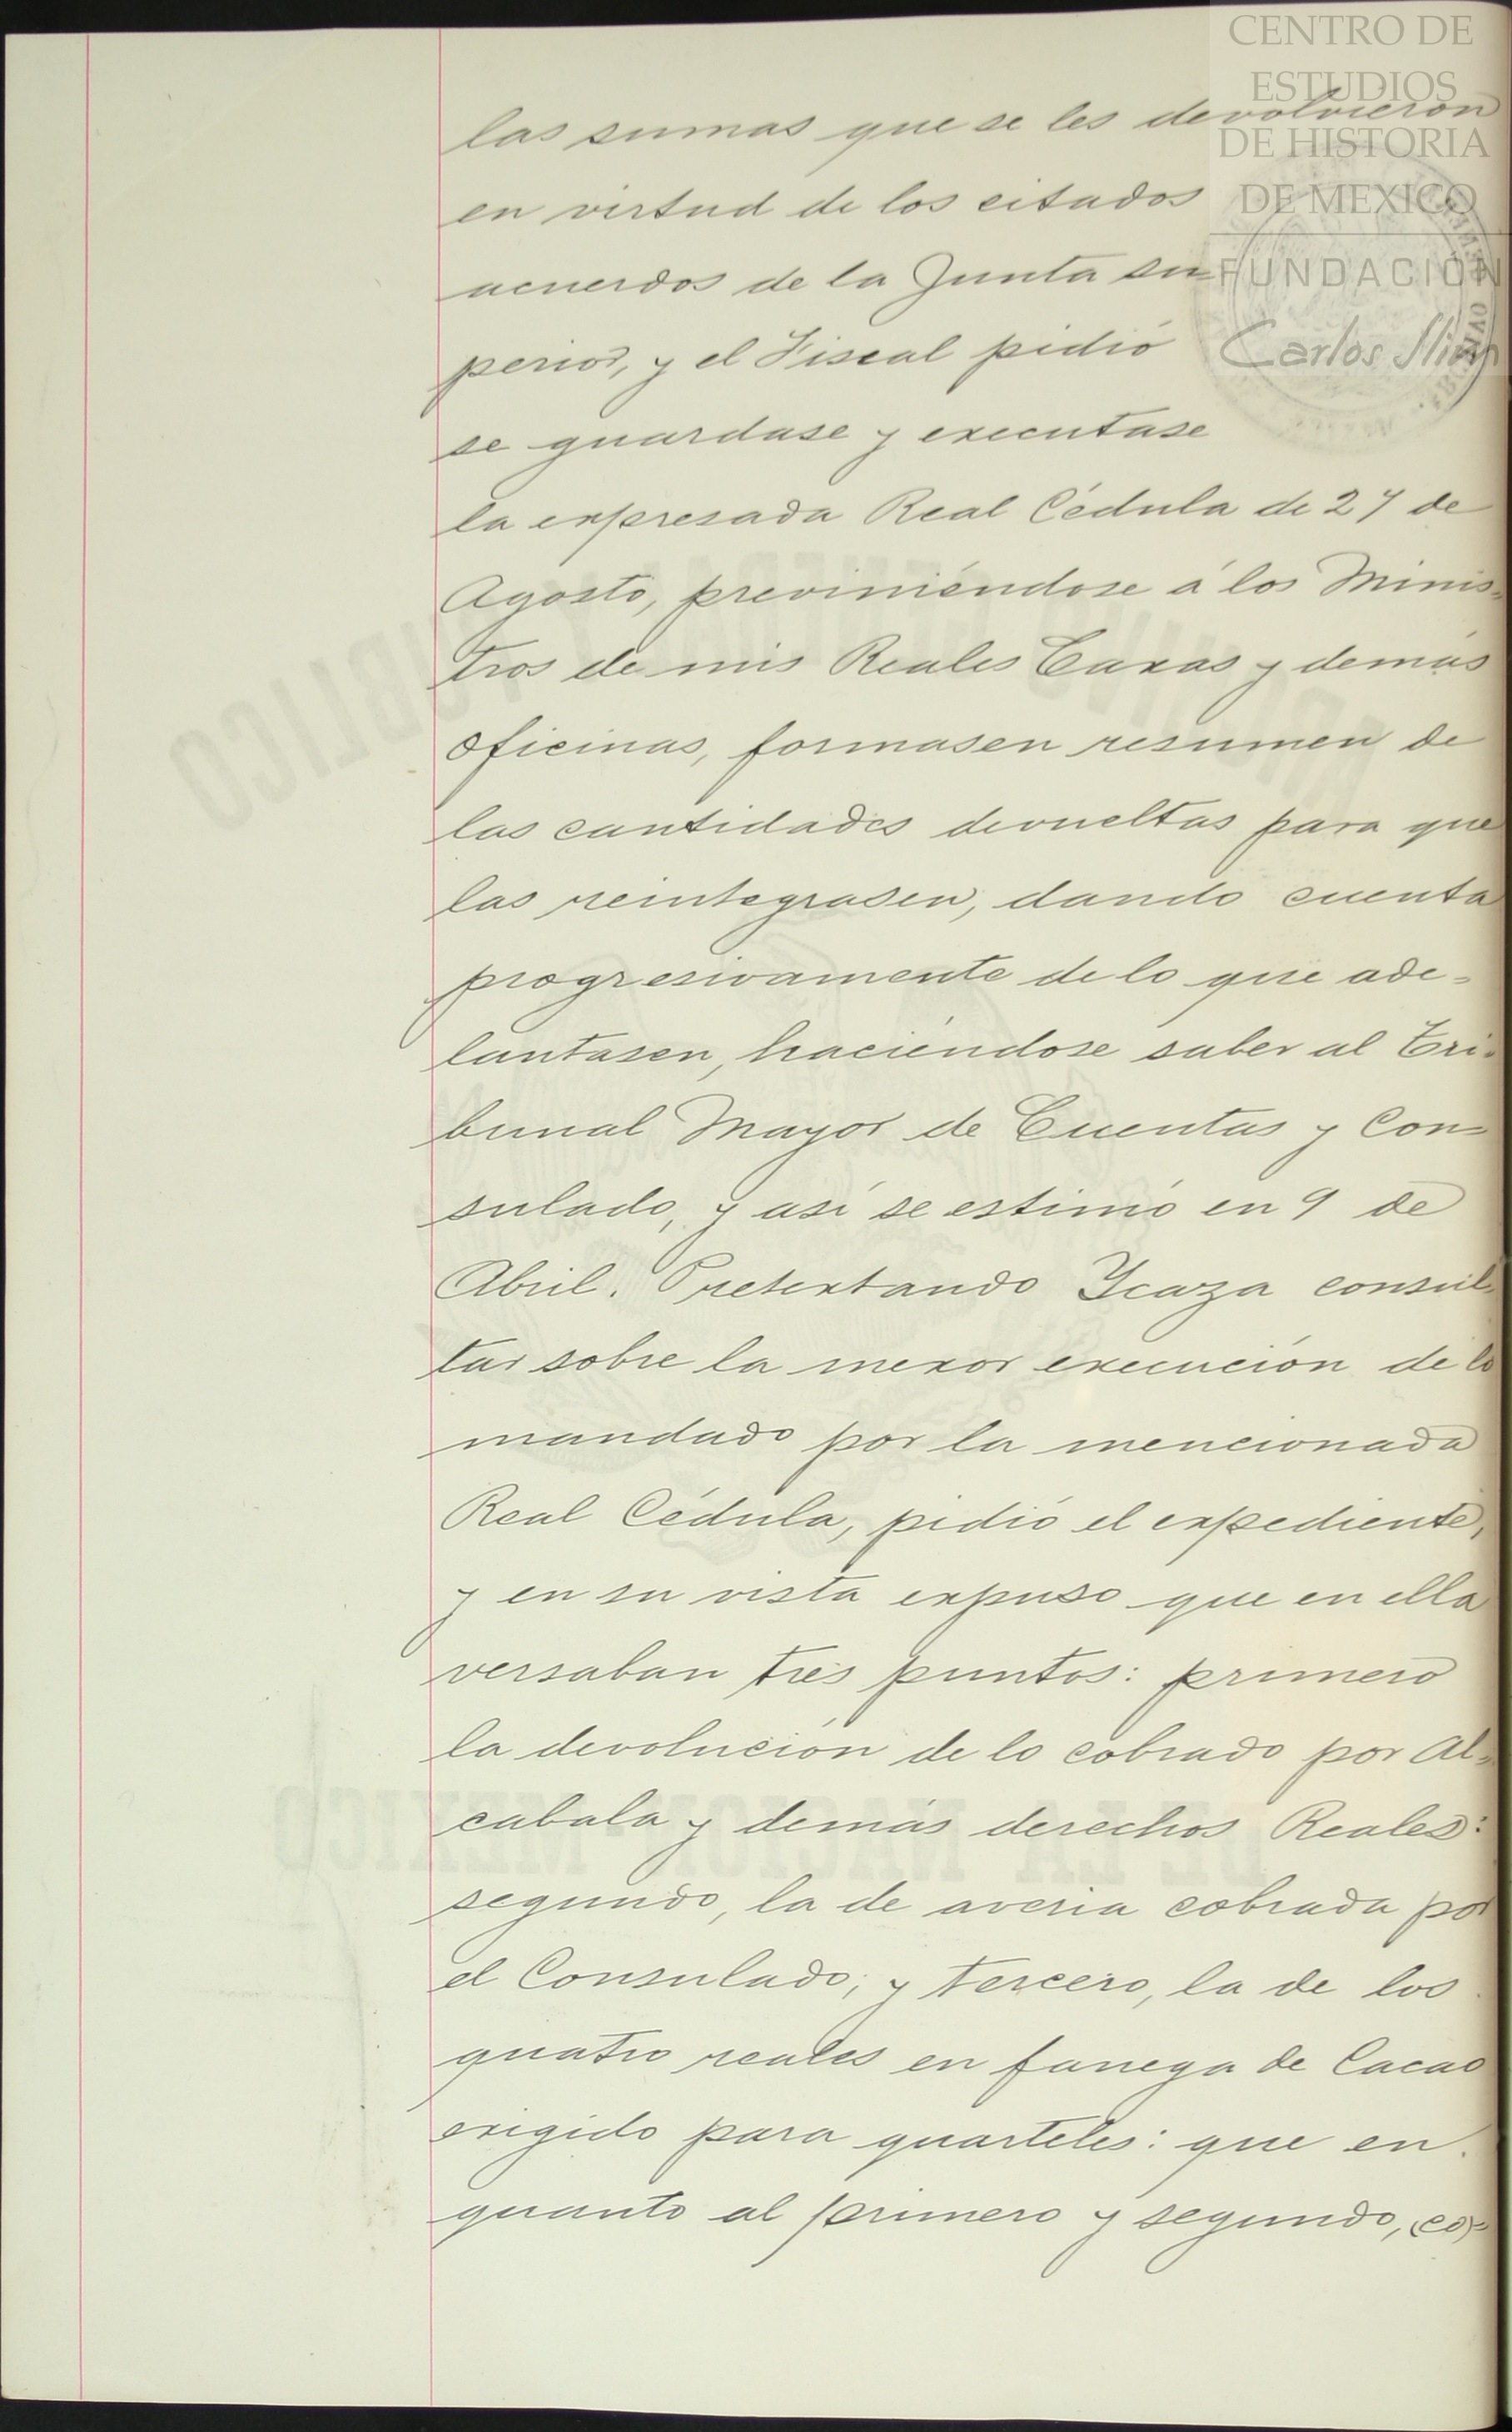 CENTRO DE
ESTUDIOS
DE HISTORIA
DE MEXICO
FUNDACIÓN
Carlos Slim
las sumas que se les devolvieron
en virtud de los citados
acuerdos de la Junta su-
perior, y el Fiscal pidió
se guardase y executase
la expresada Real Cédula de 27 de
Agosto, previniéndose á los Minis-
tros de mis Reales Caxas y demás
oficinas, formasen resumen de
las cantidades devueltas para que
las reintegrasen, dando cuenta
progresivamente de lo que ade-
lantasen, haciéndose saber al Tri-
bunal Mayor de Cuentas y Con-
sulado, y así se estimó en 9 de
Abril. Pretextando Ycaza consul-
tar sobre la mexor execución de lo
mandado por la mencionada
Real Cédula, pidió el expediente,
y en su vista expuso que en ella
versaban tres puntos: primero
la devolución de lo cobrado por Al-
cabala y demás derechos Reales:
segundo, la de avería cobrada por
el Consulado; y tercero, la de los
quatro reales en fanega de Cacao
exigido para quarteles: que en
quanto al primero y segundo, co-
ARCHIVO GENERAL Y PUBLICO
DE LA NACION MEXICO